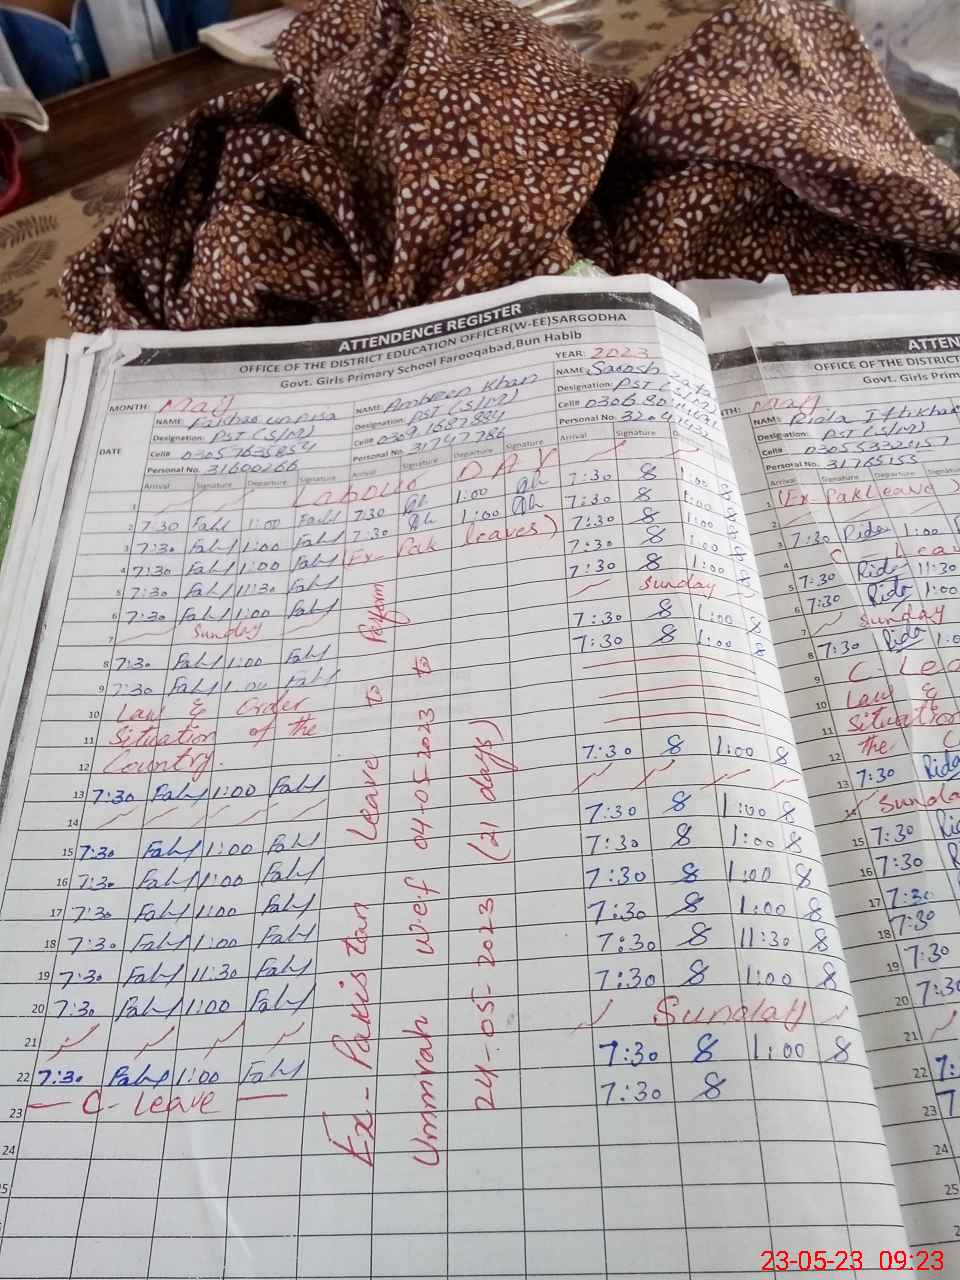 ATTENDENCE REGISTER
OFFICE OF THE DISTRICT EDUCATION OFFICER(W-EE)SARGODHA
Govt. Girls Primary School Farooqabad,Bun Habib
MONTH: May YEAR: 2023
NAME: NAME: Ambreen Khan NAME: Sarosh
Designation: PST (S/M) Designation: PST (S/M) Designation: PST (S/M)
Cell# 03057635854 Cell# Cell#
DATE Personal No. 31600266 Personal No. 31747786 Personal No.
Arrival Signature Departure Signature Arrival Signature Departure Signature Arrival Signature
1 Labour DAY
2 7:30 Fakh 1:00 Fakh 7:30 1:00 7:30 8 1:00 8
3 7:30 Fakh 1:00 Fakh 7:30 1:00 7:30 8 1:00 8
4 7:30 Fakh 1:00 Fakh (Ex-Pak leaves) 7:30 8 1:00 8
5 7:30 Fakh 11:30 Fakh 7:30 8
6 7:30 Fakh 1:00 Fakh 7:30 8 1:00
7 Sunday Sunday
8 7:30 Fakh 1:00 Fakh 7:30 8 1:00 8
9 7:30 Fakh 1:00 Fakh 7:30 8 1:00 8
10 Law & Order
11 Situation of the
12 Country.
13 7:30 Fakh 1:00 Fakh 7:30 8 1:00 8
14
15 7:30 Fakh 1:00 Fakh 7:30 8 1:00 8
16 7:30 Fakh 1:00 Fakh 7:30 8 1:00 8
17 7:30 Fakh 1:00 Fakh 7:30 8 1:00 8
18 7:30 Fakh 1:00 Fakh 7:30 8 1:00 8
19 7:30 Fakh 11:30 Fakh 7:30 8 11:30 8
20 7:30 Fakh 1:00 Fakh 7:30 8 1:00 8
21 Sunday
22 7:30 Fakh 1:00 Fakh 7:30 8 1:00 8
23 C-Leave 7:30 8
24
25
Ex-Pakistan Leave to Perform
Ummrah w.e.f 04-05-2023 to
24-05-2023 (21 days)
ATTEN
OFFICE OF THE DISTRICT
Govt. Girls Prim
TH: May
NAME: Rida Iftikhar
Designation: PST (S/M)
Cell#
Personal No. 31765153
Arrival Signature Departure Signature
1 (Ex-Pak Leave)
2
3 7:30 Rida 1:00
4
5 7:30 Rida 11:30
6 7:30 Rida 1:00
7 Sunday
8 7:30 Rida
9 C-Lea
10 Law &
11 Situation
12 the
13 7:30 Rida
14 Sunda
15 7:30
16 7:30
17 7:30
18 7:30
19 7:30
20 7:30
21
22 7:
23 7
24
25
23-05-23 09:23